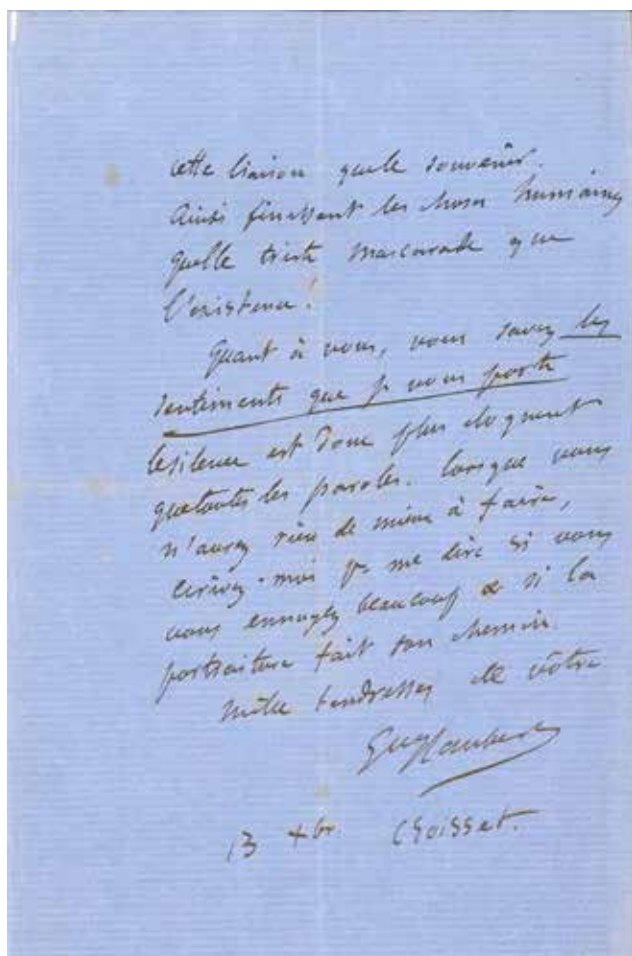 cette liaison que le souvenir.
Ainsi finissent les choses humaines
quelle triste mascarade que
l'existence!
Quant à vous, vous savez les
sentiments que je vous porte
le silence est donc plus éloquent
que toutes les paroles. Lorsque vous
n'aurez rien de mieux à faire,
écrivez-moi pr me dire si vous
vous ennuyez beaucoup & si la
portraiture fait son chemin.
Mille tendresses de vôtre
Gve Flaubert
13 Xbr. Croisset.